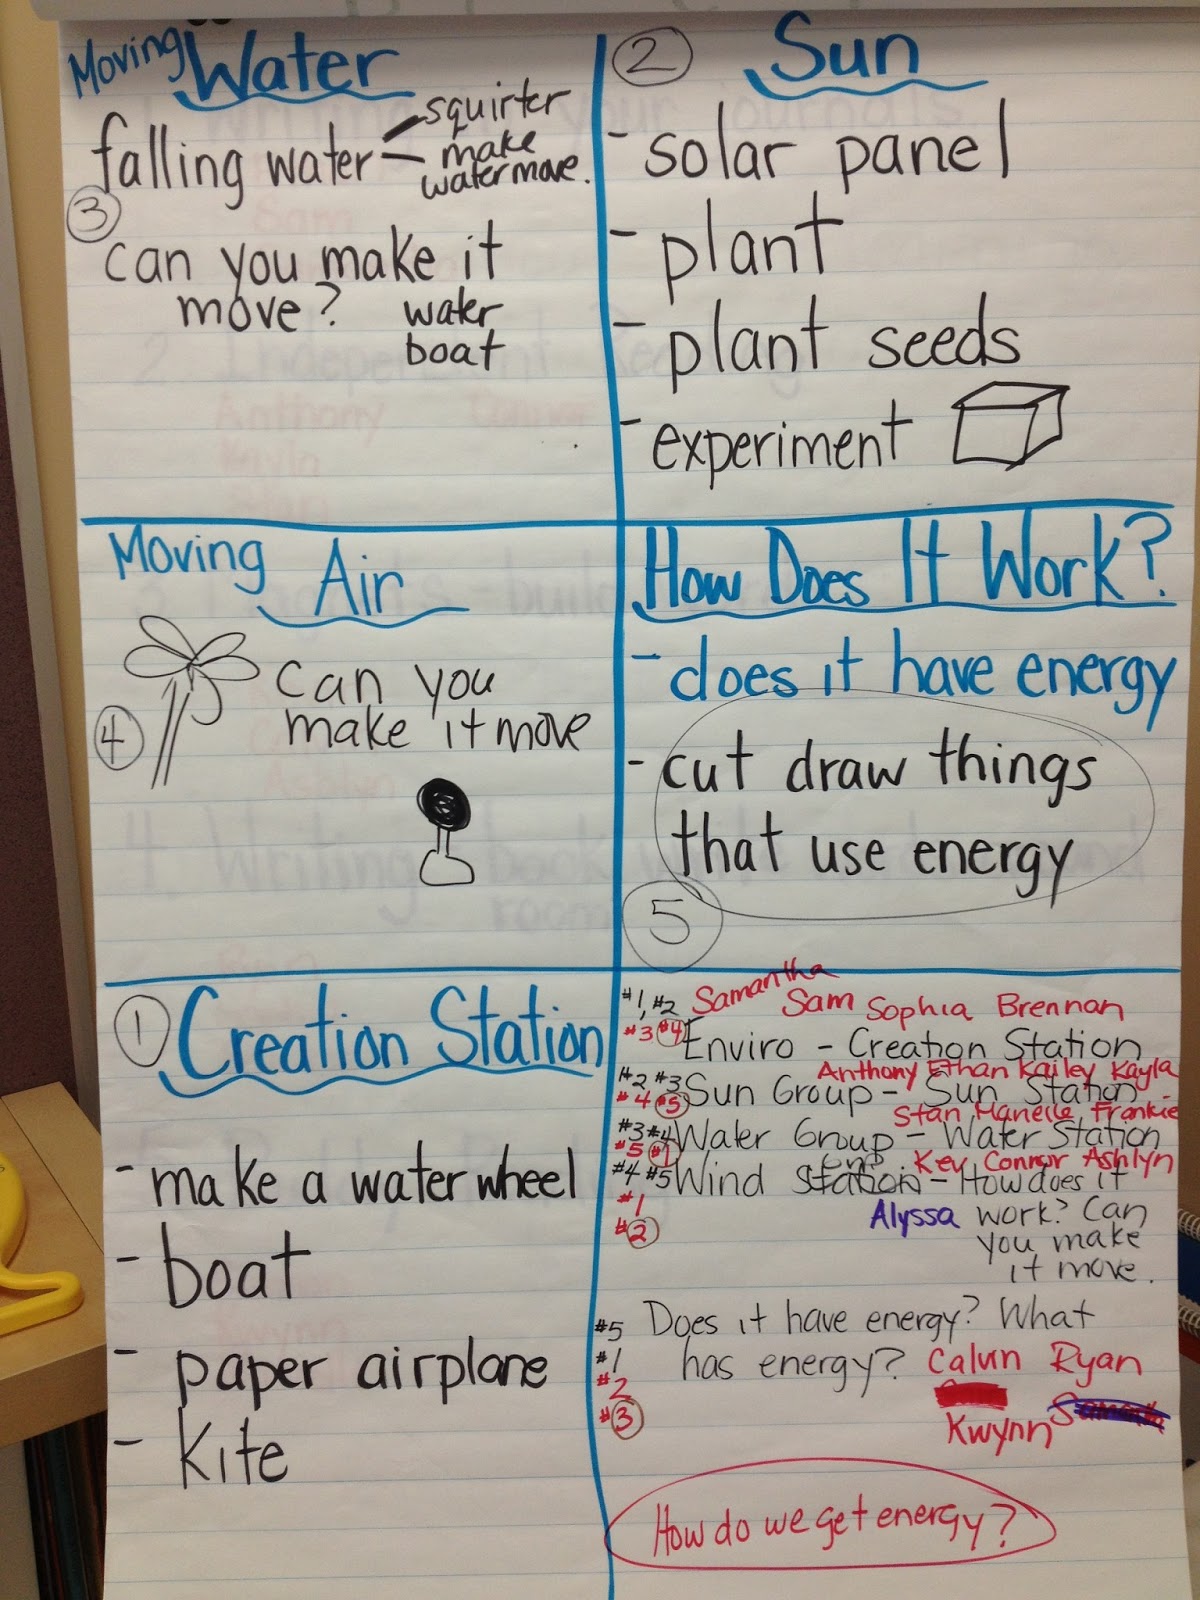 Moving Water
falling water
squirter
make
water move.
3
can you make it
move?
water
boat
2
Sun
- solar panel
- plant
- plant seeds
- experiment
Moving Air
4
can you
make it move
How Does It Work?
- does it have energy
- cut draw things
that use energy
5
1
Creation Station
- make a water wheel
- boat
- paper airplane
- Kite
#1, #2 Samantha Sam Sophia Brennan
#3 #4 Enviro - Creation Station
Anthony Ethan Kailey Kayla
#2 #3 Sun Group - Sun Station
#4 #5
Stan Manelle Frankie
#3 #4 Water Group - Water Station
#5 #1
Kev Connor Ashlyn
#4 #5 Wind Station - How does it
#1
Alyssa work? Can
#2
you make
it move.
#5 Does it have energy? What
#1 has energy? Calun Ryan
#2
#3
Kwynn
How do we get energy?